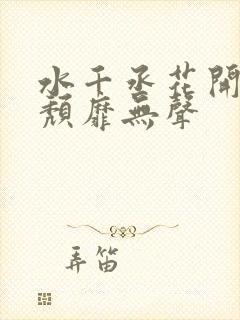 水千丞花開
頹靡無聲
弄笛